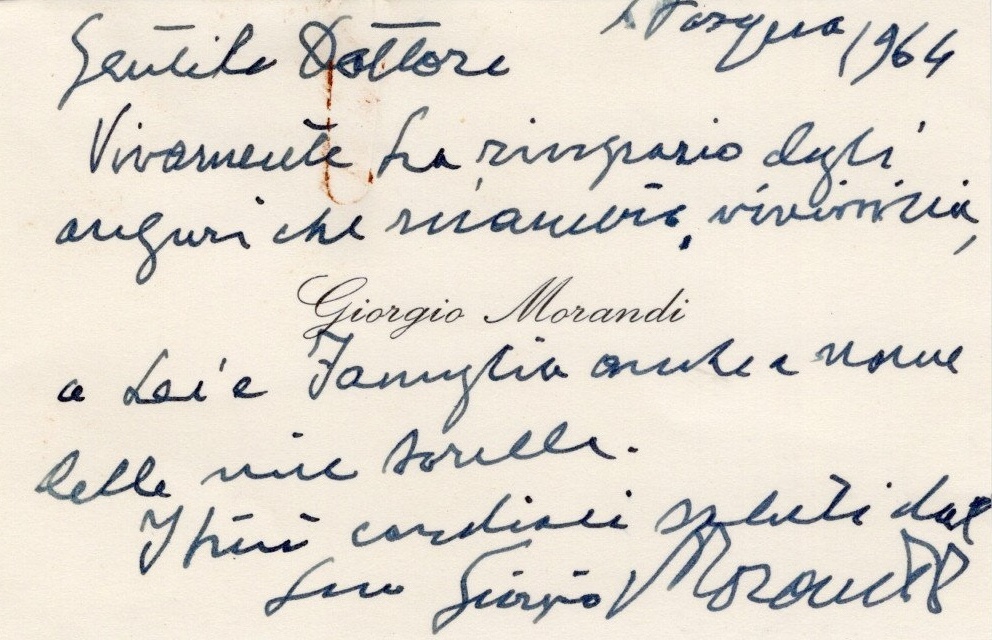 Pasqua 1964
Gentile Dottore
Vivamente La ringrazio degli
auguri che ricambio, vivissimi,
Giorgio Morandi
a Lei e Famiglia anche a nome
delle mie sorelle.
I più cordiali saluti dal
Suo Giorgio Morandi